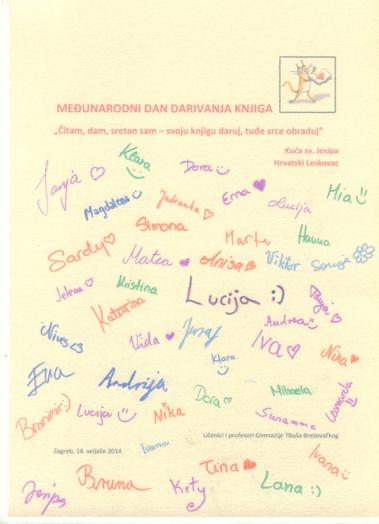 MEĐUNARODNI DAN DARIVANJA KNJIGA
„Čitam, dam, sretan sam – svoju knjigu daruj, tuđe srce obraduj“
Kuća sv. Josipa
Hrvatski Leskovac
Klara
Dora
Janja
Magdalena
Jadranka
Erna
Lucija
Mia
Simona
Marta
Hanna
Matea
Anisa
Viktor
Jelena
Kristina
Katarina
Lucija :)
Tanja
Andrea
Vida
Josip
Iva
Nina
Klara
Eva
Andrija
Dora
Mihaela
Branimir :)
Lucija
Nika
Suzanna
Leonarda
Učenici i profesori Gimnazije Tituša Brezovačkog
Ivana
Zagreb, 14. veljače 2014.
Ivana
Tina
Bruna
Kety
Lana :)
Josipa